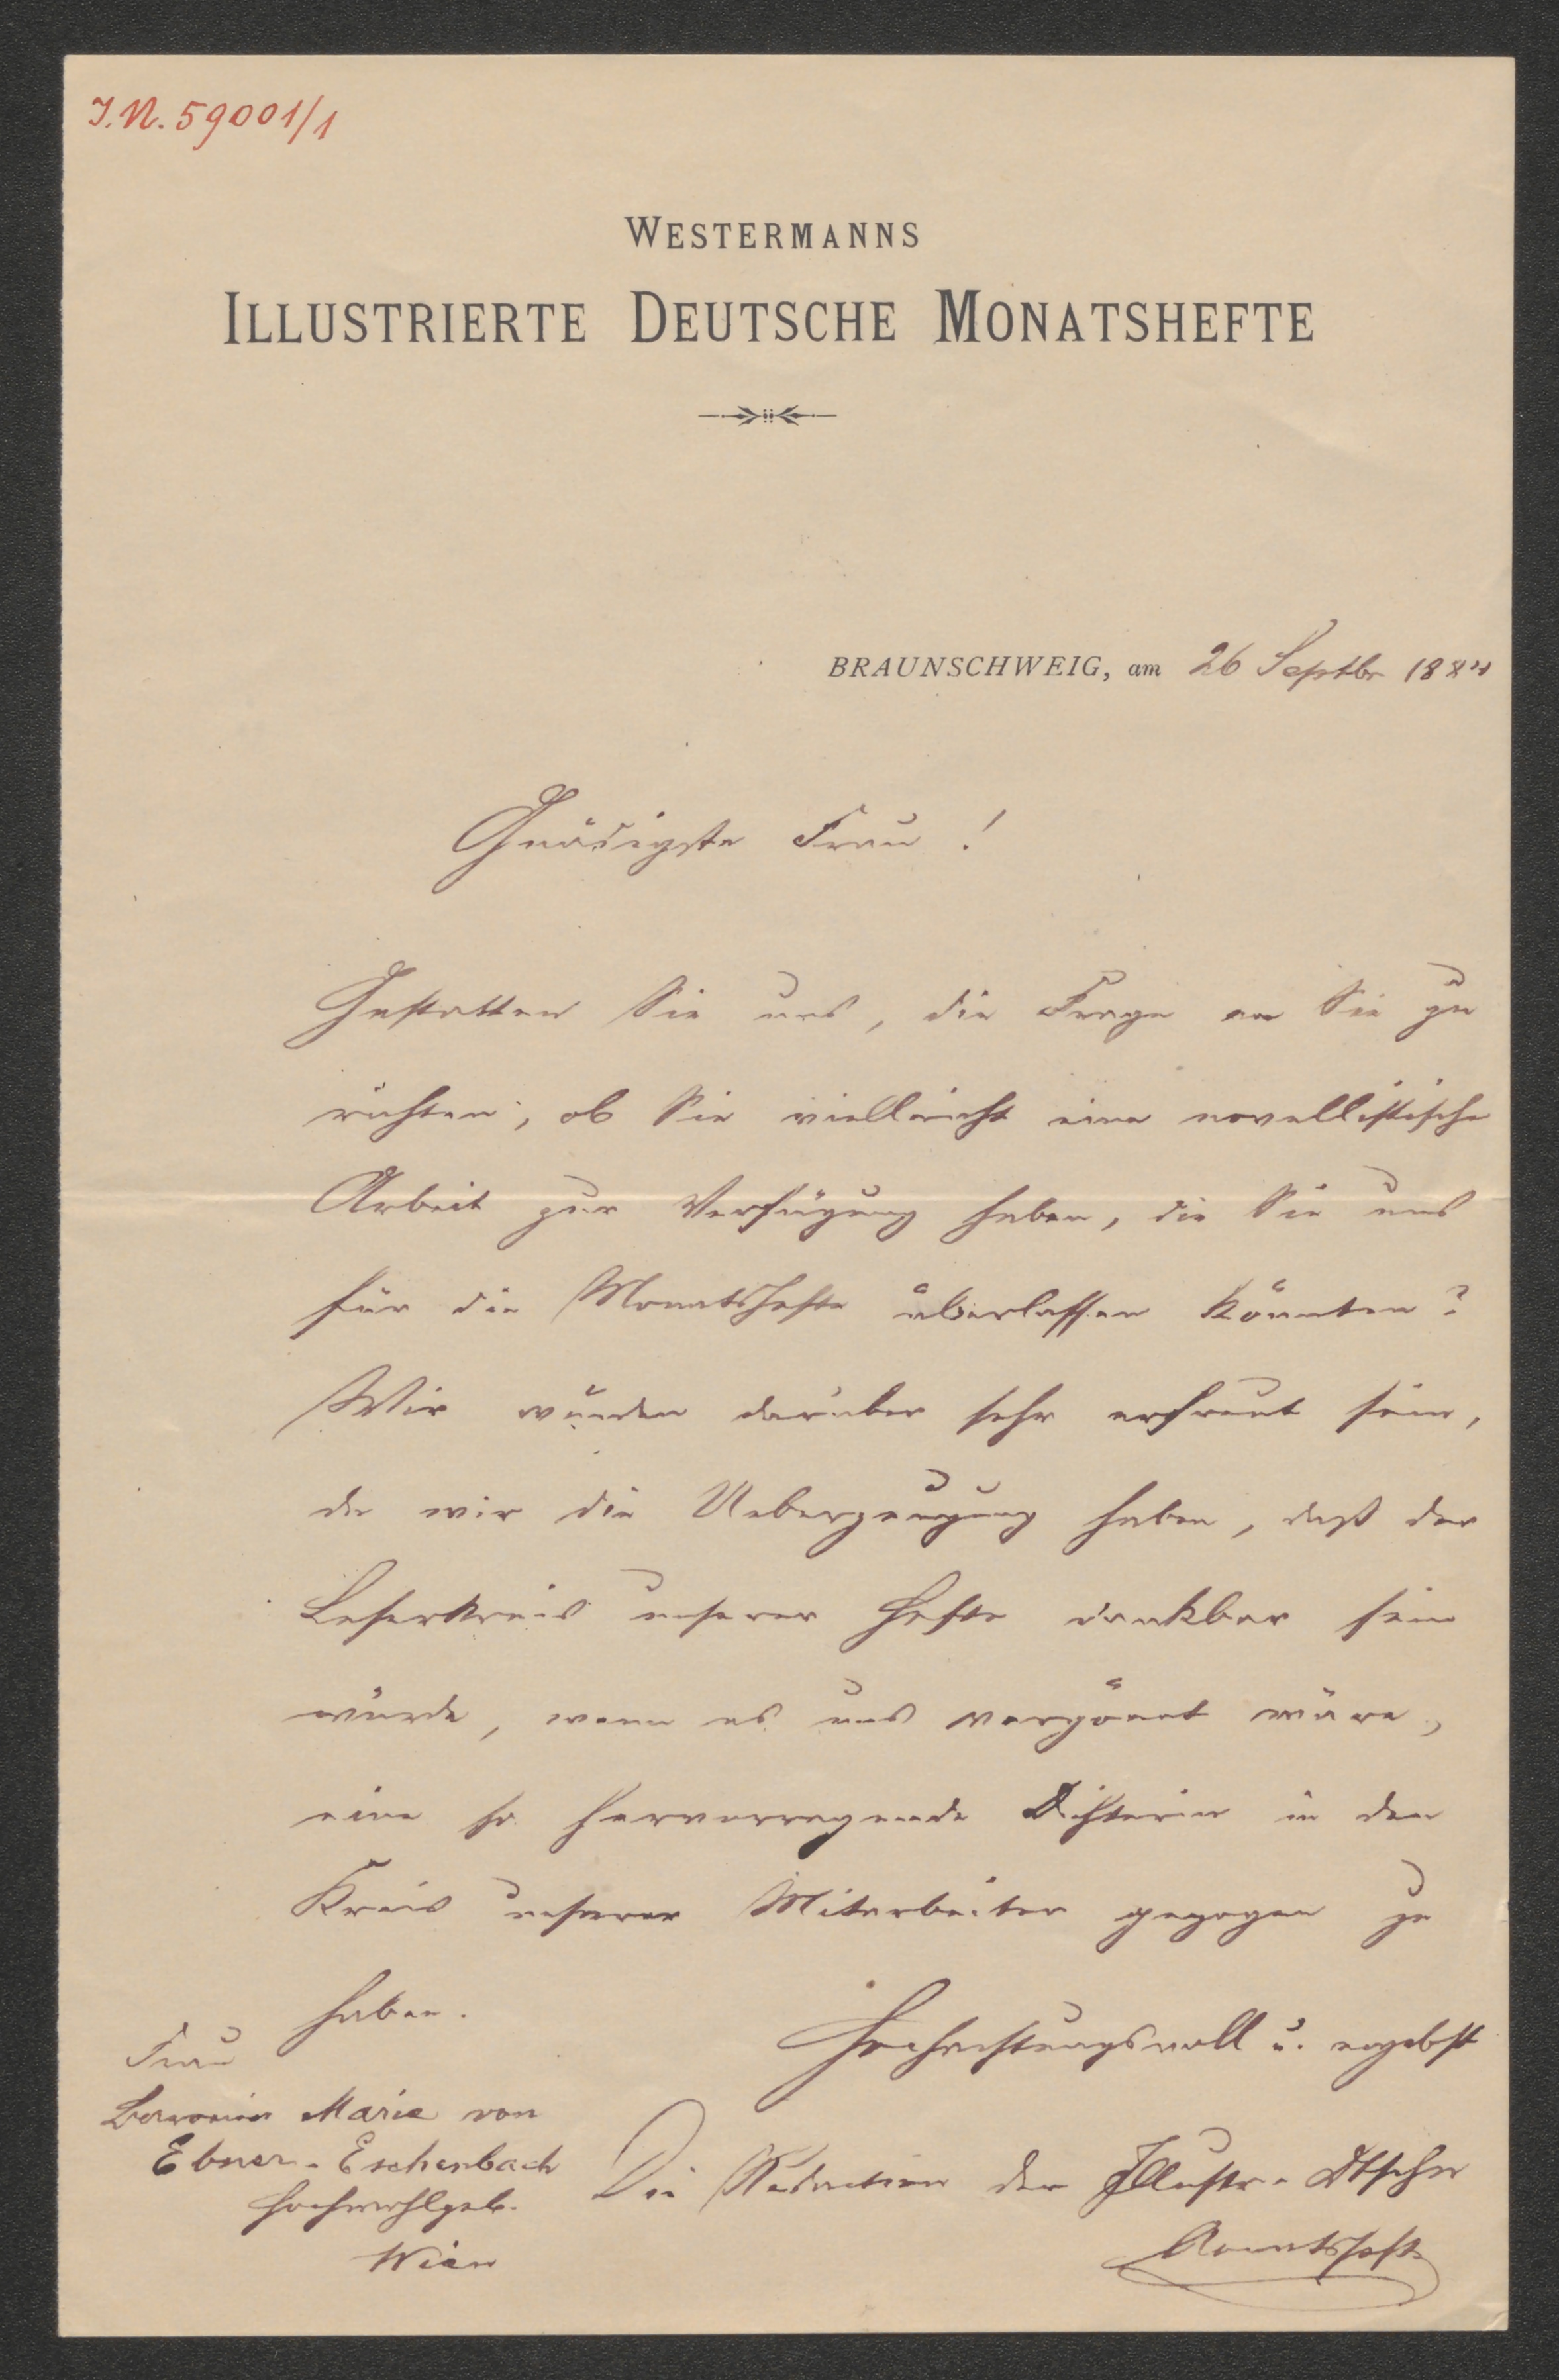 J.N. 59001/1
WESTERMANNS
ILLUSTRIERTE DEUTSCHE MONATSHEFTE
BRAUNSCHWEIG, am 26 Septbr 1884
Gnädigste Frau!
Gestatten Sie uns, die Frage an Sie zu
richten, ob Sie vielleicht eine novellistische
Arbeit zur Verfügung haben, die Sie uns
für die Monatshefte überlassen könnten?
Wir würden darüber sehr erfreut sein,
da wir die Ueberzeugung haben, daß der
Leserkreis unserer Hefte dankbar sein
würde, wenn es uns vergönnt wäre,
eine so hervorragende Dichterin in den
Kreis unserer Mitarbeiter gezogen zu
haben.
Hochachtungsvoll u. ergebst
Die Redaction der Illustr. Dtschn
Monatshefte
Frau
Baronin Marie von
Ebner-Eschenbach
Hochwohlgeb.
Wien